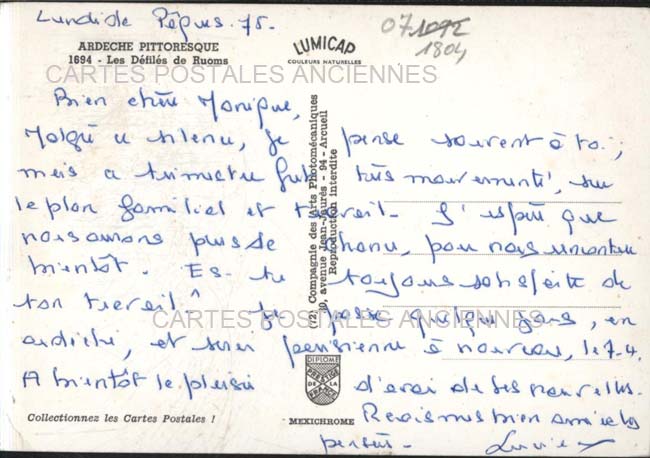 Lundi de Pâques. 75.
ARDECHE PITTORESQUE
1694 - Les Défilés de Ruoms
LUMICAP
COULEURS NATURELLES
07
1092
1804
CARTES POSTALES ANCIENNES
Bien chère Monique,
Malgré ce silence, je pense souvent à toi,
mais ce trimestre fut très mouvementé, sur
le plan familial et travail. J'espère que
nous aurons plus de chance, pour nous
bientôt. Es-tu toujours satisfaite de
ton travail ? Je passe quelques jours, en
ardèche, et serai parisienne à nouveau, le 7.4.
A bientôt le plaisir d'avoir de tes nouvelles.
Reçois mes bien amicales
pensées.
CARTES POSTALES ANCIENNES
(72) Compagnie des Arts Photomécaniques
avenue Jean-Jaurès - 94 - Arcueil
Reproduction interdite
DIPLOME
PRESTIGE
DE LA
FRANCE
MEXICHROME
Collectionnez les Cartes Postales !